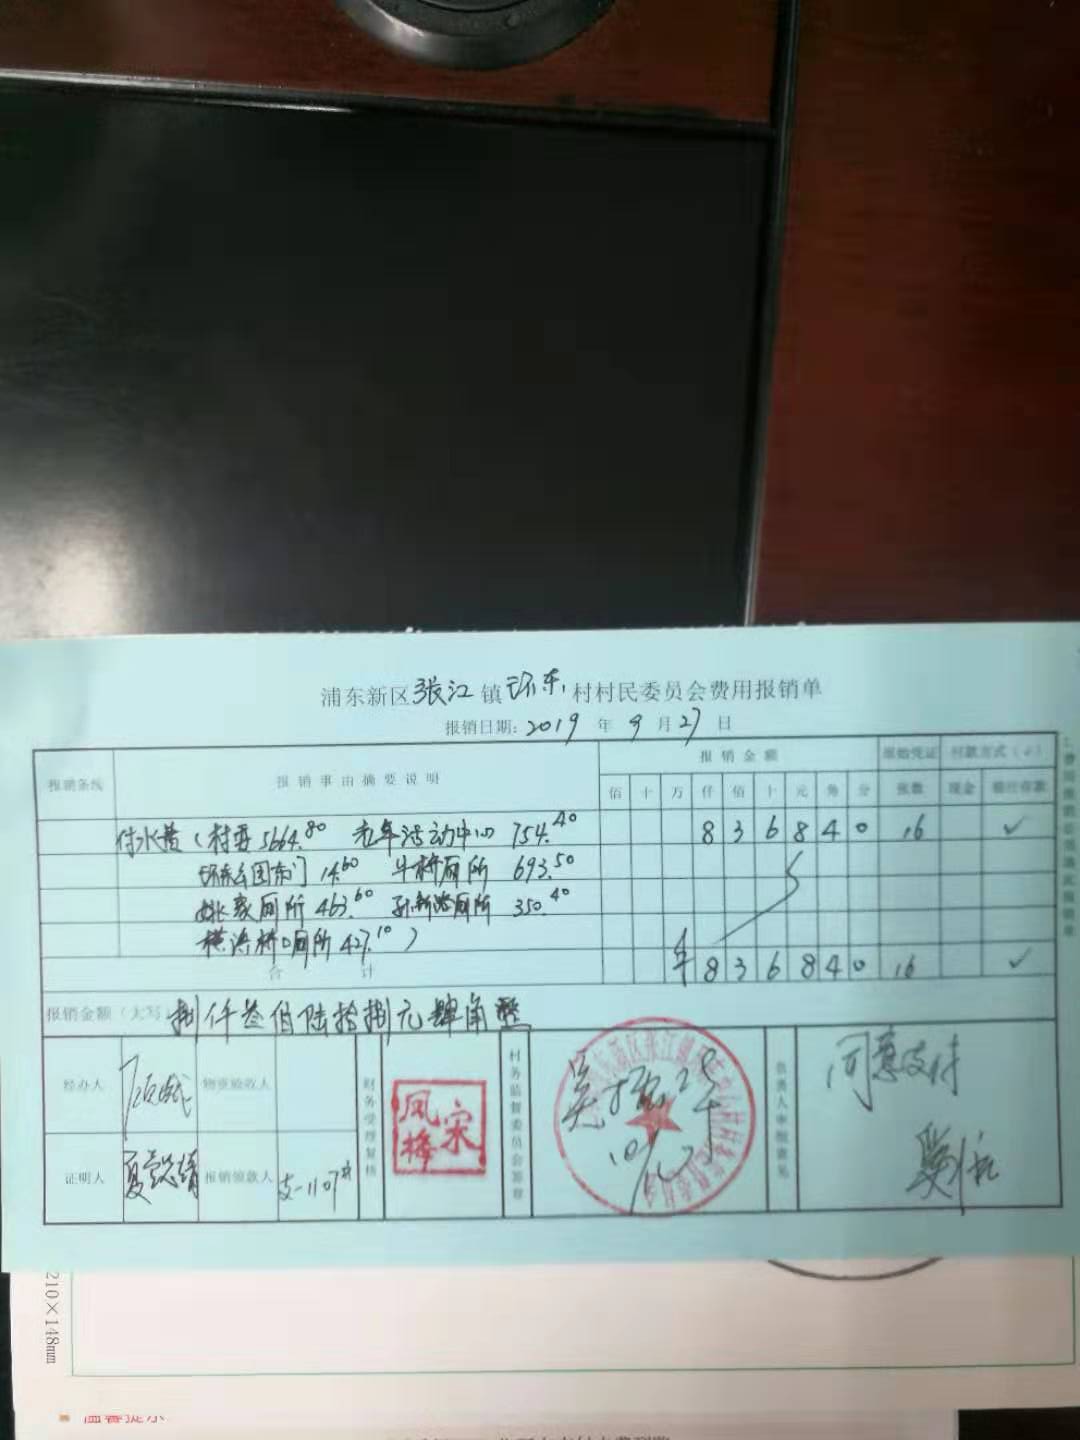 浦东新区张江镇环东村村民委员会费用报销单
报销日期：2019年9月27日
报销条线 报销事由摘要说明 报销金额 原始凭证 付款方式（√）
佰 十 万 仟 佰 十 元 角 分 张数 现金 银行存款
付水费（村委5664.80 老年活动中心 754.40 8 3 6 8 4 0 16 ✓
环东公园东门 14.60 牛桥厕所 693.50
姚家厕所 463.60 孙新路厕所 350.40
横浜桥口厕所 427.10）
合计 ¥ 8 3 6 8 4 0 16 ✓
报销金额（大写）捌仟叁佰陆拾捌元肆角整
经办人 物资验收人 财务受理复核 宋凤梅 村务监督委员会签章 负责人审批意见 同意支付
证明人 报销领款人 支-1107#
210×148mm
温馨提示